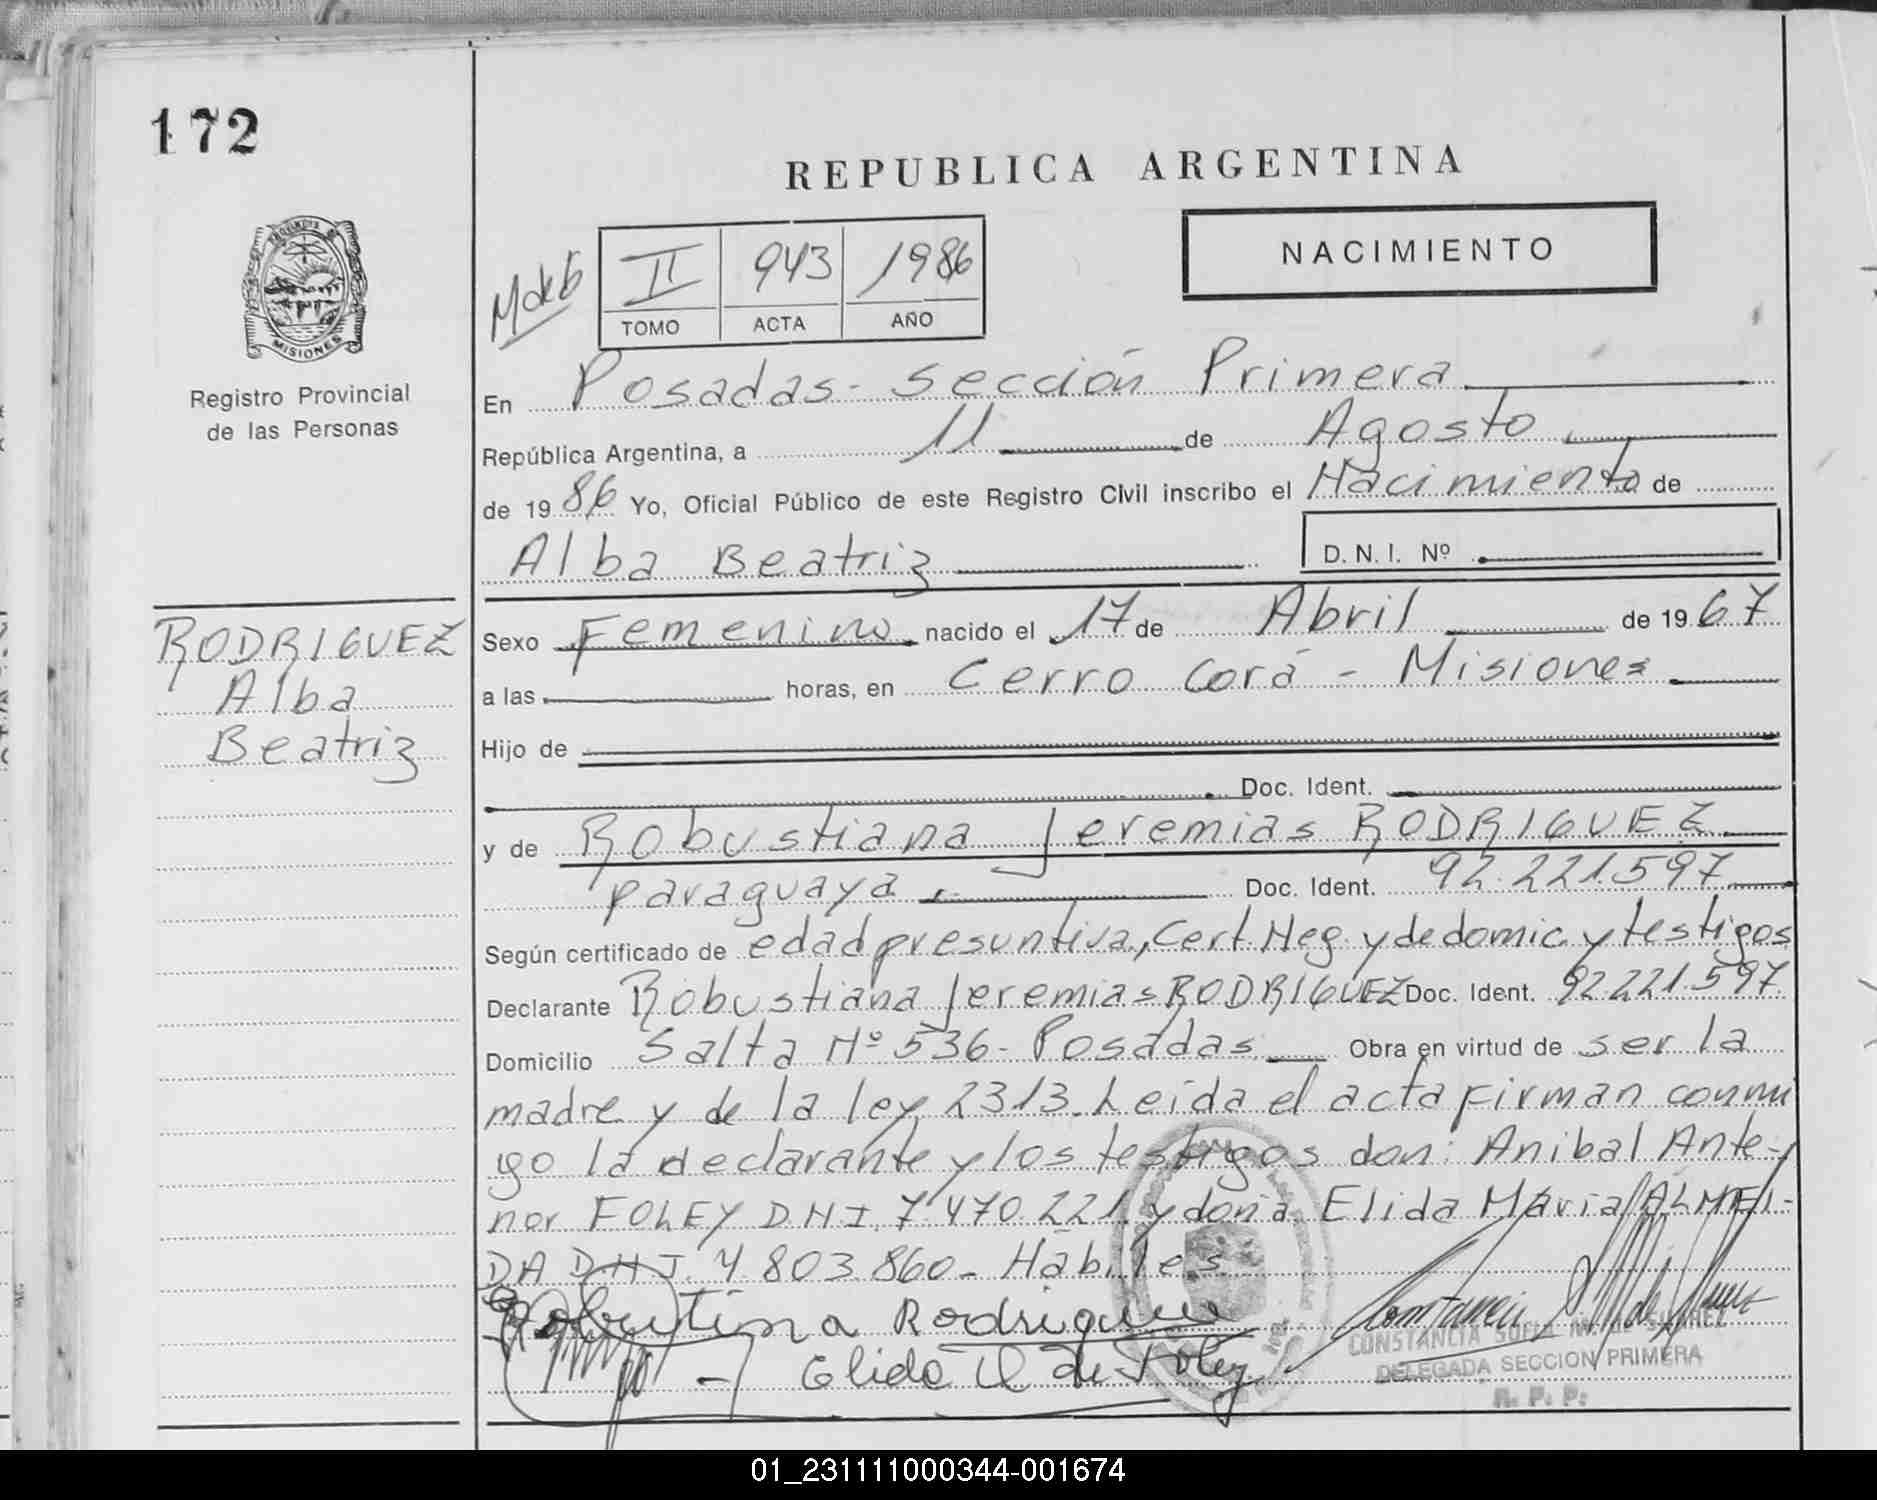 172
REPUBLICA ARGENTINA
NACIMIENTO
II 943 1986
TOMO ACTA AÑO
PROVINCIA DE
MISIONES
Registro Provincial
de las Personas
En Posadas - sección Primera
República Argentina, a 11 de Agosto
de 1986 Yo, Oficial Público de este Registro Civil inscribo el Nacimiento de
Alba Beatriz D. N. I. Nº
RODRIGUEZ
Alba
Beatriz
Sexo Femenino nacido el 17 de Abril de 1967
a las horas, en Cerro Corá - Misiones
Hijo de
Doc. Ident.
y de Robustiana Jeremias RODRIGUEZ
paraguaya Doc. Ident. 92.221.597
Según certificado de edad presuntiva, Cert. Neg. y de domic. y testigos
Declarante Robustiana Jeremias RODRIGUEZ Doc. Ident. 92.221.597
Domicilio Salta Nº 536 - Posadas. Obra en virtud de ser la
madre y de la ley 2313. Leida el acta firman conmi
go la declarante y los testigos don: Anibal Ante-
nor FOLEY D.N.I. 7.470.221 y doña Elida Maria ALMEI-
DA D.N.I. 4.803.860 - Hábiles
Rodriguez
Elida A de Foley
CONSTANCIA SOFIA M. DE
DELEGADA SECCION PRIMERA
R. P. P.
01_231111000344-001674